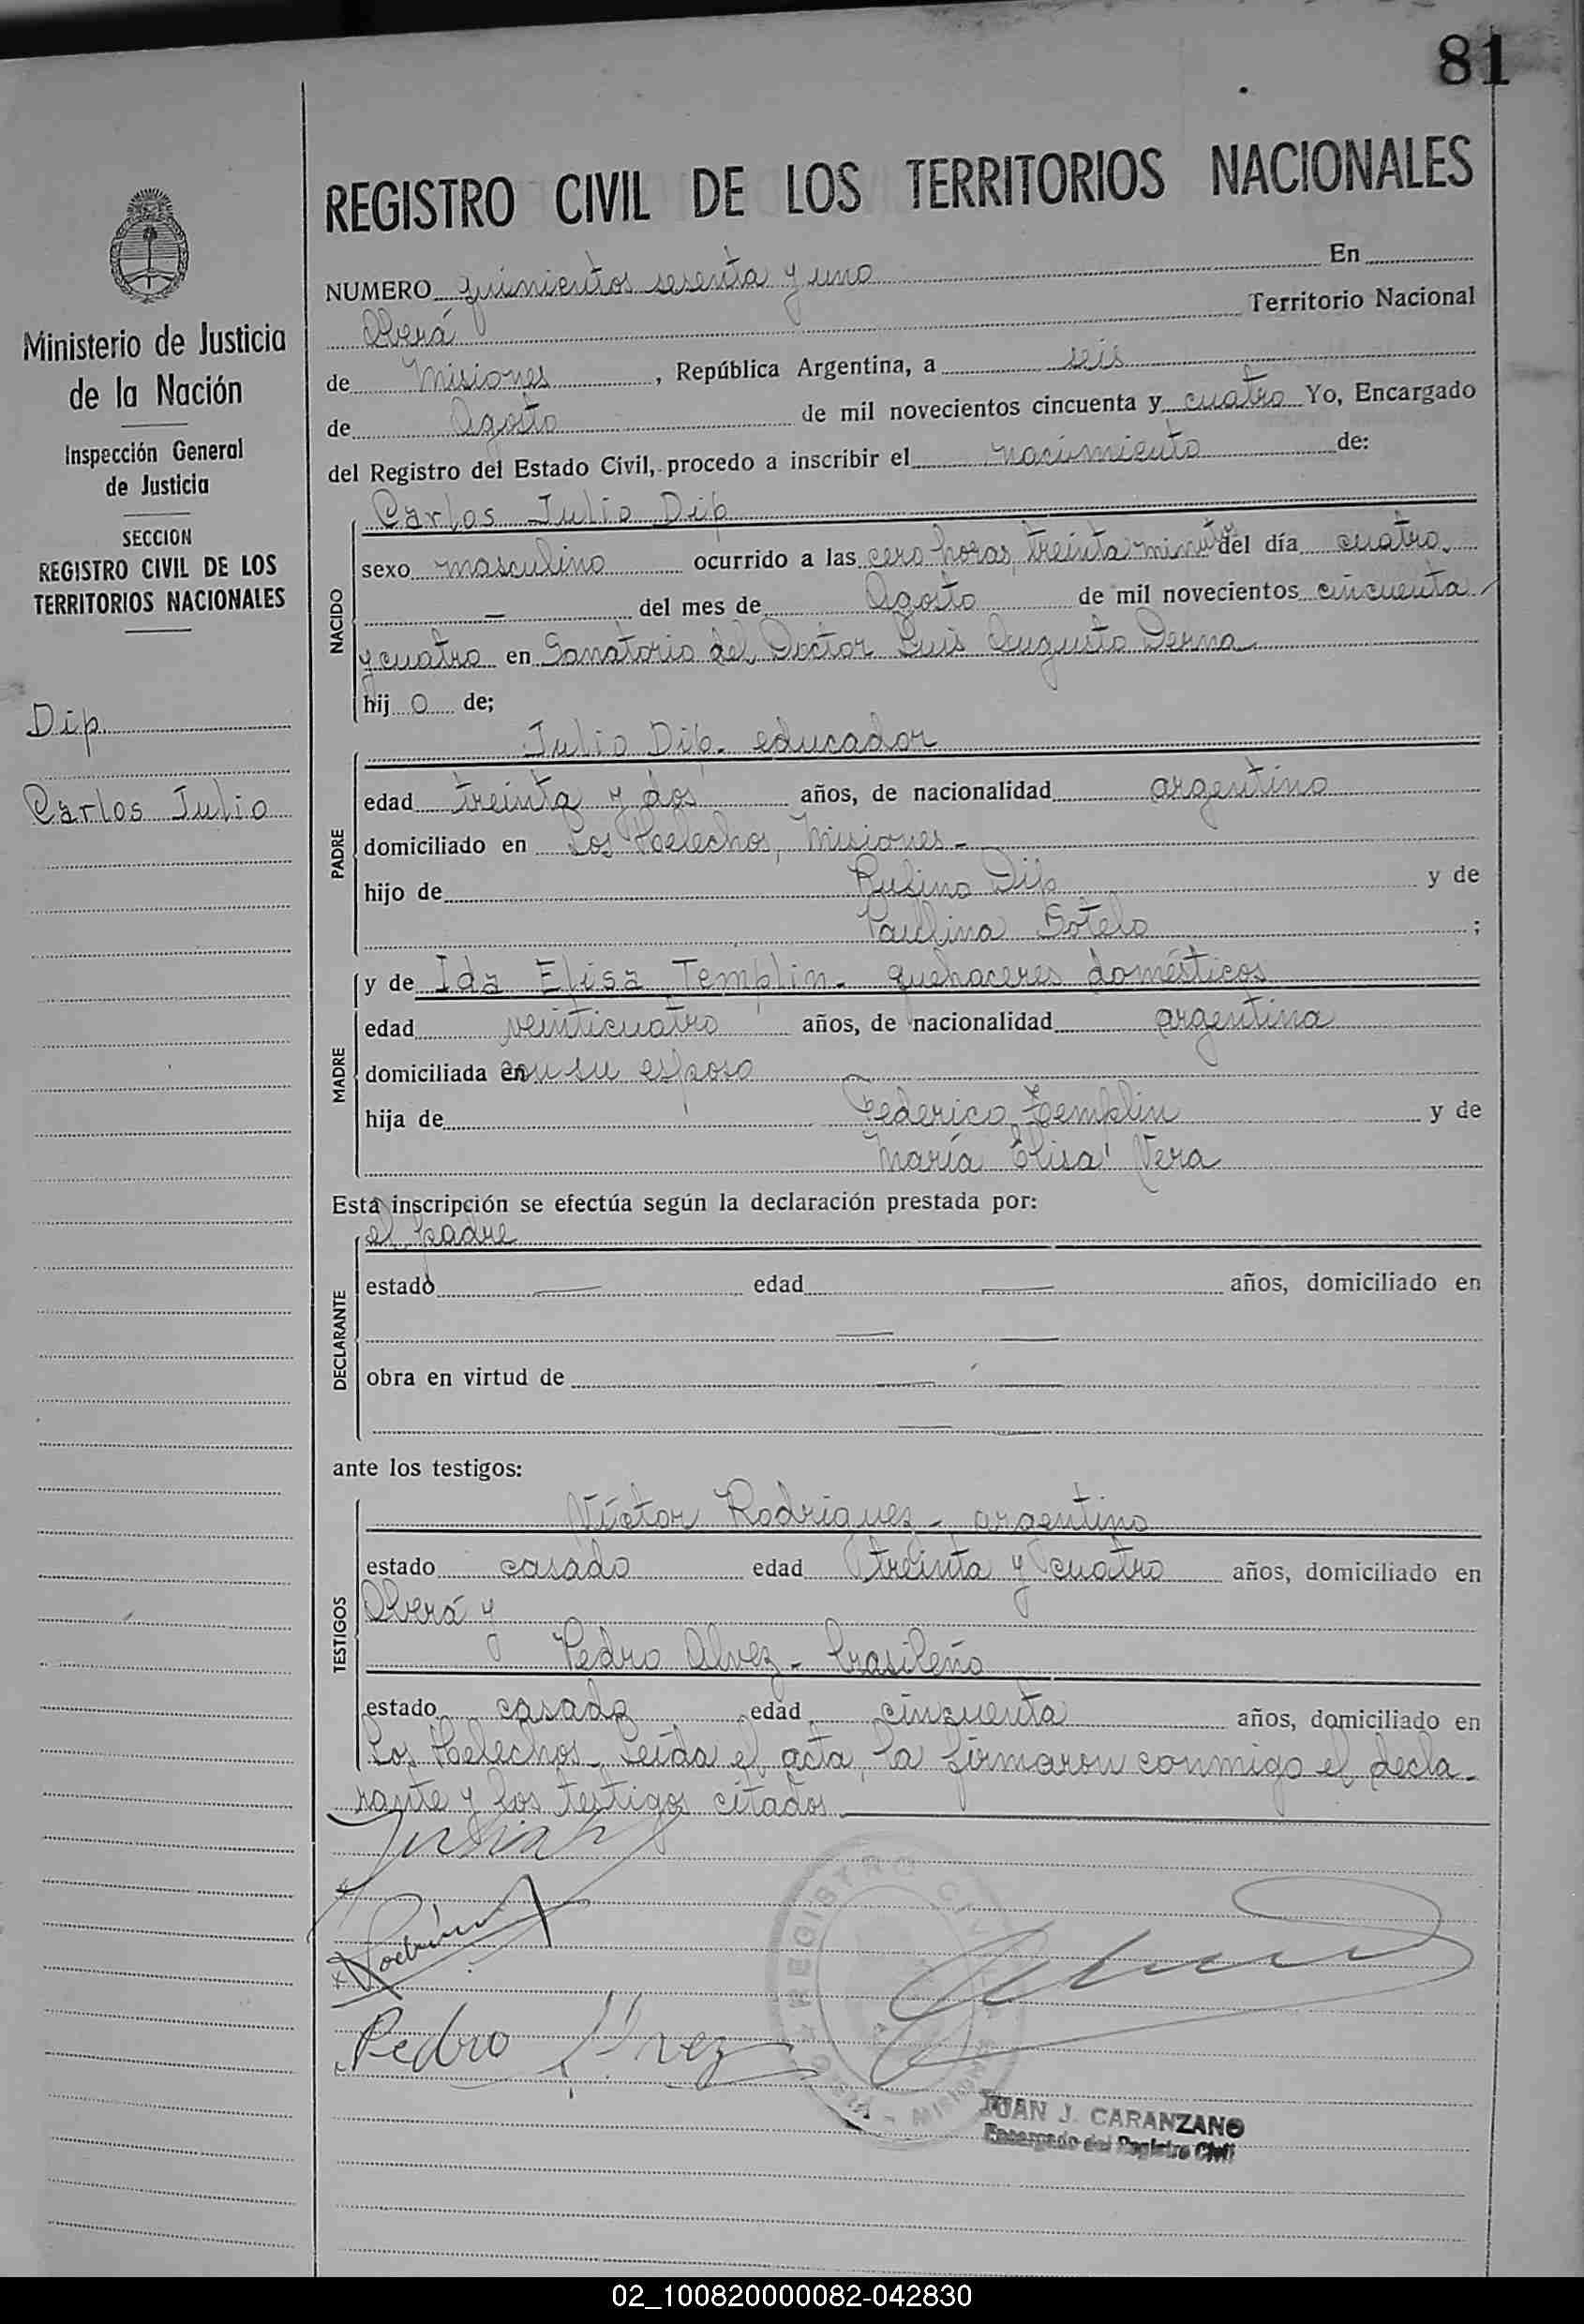 81
REGISTRO CIVIL DE LOS TERRITORIOS NACIONALES
Ministerio de Justicia
de la Nación
Inspección General
de Justicia
SECCION
REGISTRO CIVIL DE LOS
TERRITORIOS NACIONALES
Dip
Carlos Julio
NUMERO quinientos sesenta y uno En
Oberá Territorio Nacional
de Misiones, República Argentina, a seis
de Agosto de mil novecientos cincuenta y cuatro Yo, Encargado
del Registro del Estado Civil, procedo a inscribir el nacimiento de:
NACIDO
Carlos Julio Dip
sexo masculino ocurrido a las cero horas, treinta minutos del día cuatro
— del mes de Agosto de mil novecientos cincuenta
y cuatro en Sanatorio del Doctor Luis Augusto Derna
hijo de;
PADRE
Julio Dip - educador
edad treinta y dos años, de nacionalidad argentino
domiciliado en Los Helechos, Misiones -
hijo de Rufino Dip y de
Paulina Sotelo ;
MADRE
y de Ida Elisa Templin - quehaceres domésticos
edad veinticuatro años, de nacionalidad argentina
domiciliada en con su esposo
hija de Federico Templin y de
María Elisa Vera
Esta inscripción se efectúa según la declaración prestada por:
DECLARANTE
el padre
estado — edad — años, domiciliado en
— —
obra en virtud de — —
— —
ante los testigos:
TESTIGOS
Víctor Rodríguez - argentino
estado casado edad treinta y cuatro años, domiciliado en
Oberá y
Pedro Alvez - brasileño
estado casado edad cincuenta años, domiciliado en
Los Helechos - Leída el acta, la firmaron conmigo el decla-
rante y los testigos citados
Pedro Alvez
REGISTRO CIVIL
MISIONES
JUAN J. CARANZANO
Encargado del Registro Civil
02_100820000082-042830